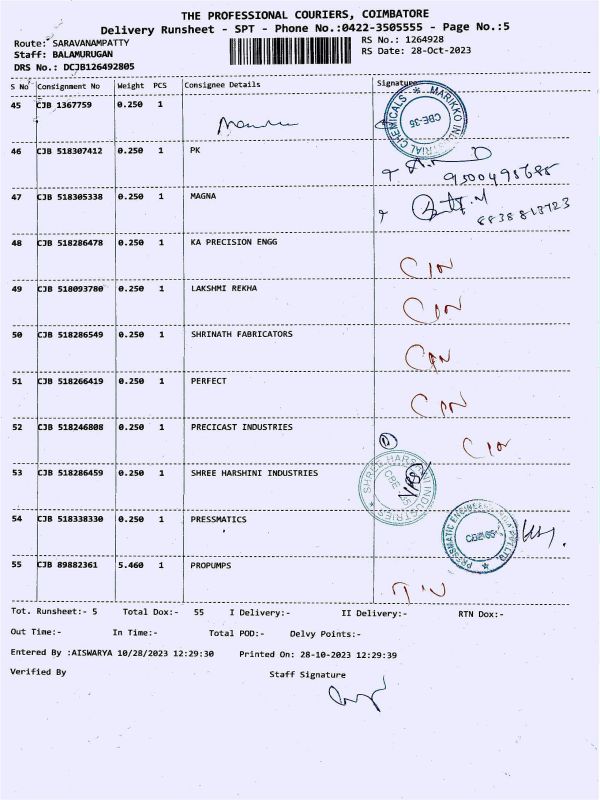 THE PROFESSIONAL COURIERS, COIMBATORE
Delivery Runsheet - SPT - Phone No.:0422-3505555 - Page No.:5
Route: SARAVANAMPATTY
RS No.: 1264928
Staff: BALAMURUGAN
RS Date: 28-Oct-2023
DRS No.: DCJB126492805
S No Consignment No Weight PCS Consignee Details Signature
45 CJB 1367759 0.250 1
MARIKKO INDUSTRIAL CHEMICALS CBE-35
46 CJB 518307412 0.250 1 PK
47 CJB 518305338 0.250 1 MAGNA
8838813723
48 CJB 518286478 0.250 1 KA PRECISION ENGG
49 CJB 518093780 0.250 1 LAKSHMI REKHA
50 CJB 518286549 0.250 1 SHRINATH FABRICATORS
51 CJB 518266419 0.250 1 PERFECT
52 CJB 518246808 0.250 1 PRECICAST INDUSTRIES
53 CJB 518286459 0.250 1 SHREE HARSHINI INDUSTRIES
SHREE HARSHINI INDUSTRIES
54 CJB 518338330 0.250 1 PRESSMATICS
55 CJB 89882361 5.460 1 PROPUMPS
Tot. Runsheet:- 5 Total Dox:- 55 I Delivery:- II Delivery:- RTN Dox:-
Out Time:- In Time:- Total POD:- Delvy Points:-
Entered By :AISWARYA 10/28/2023 12:29:30 Printed On: 28-10-2023 12:29:39
Verified By Staff Signature